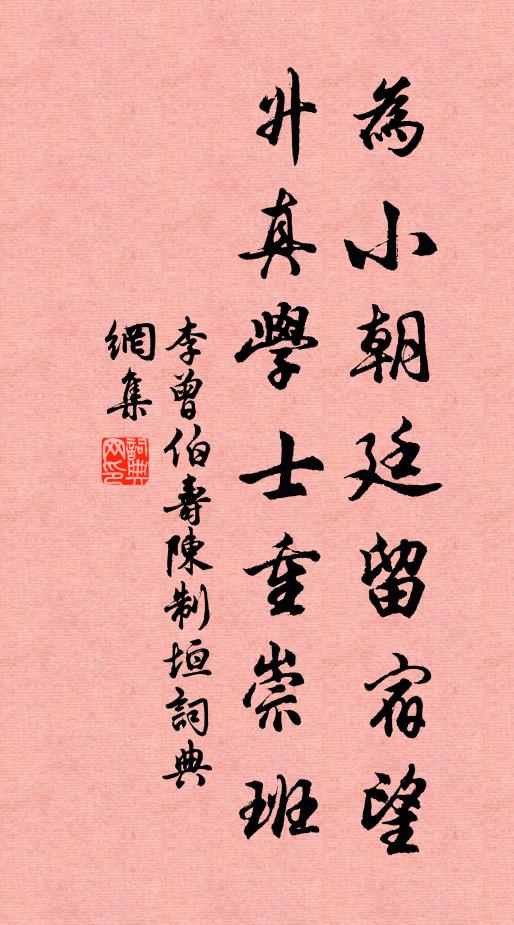 為小朝廷留宿望
升真學士重崇班
李曾伯壽陳制垣詞典
網集
詞典
網印